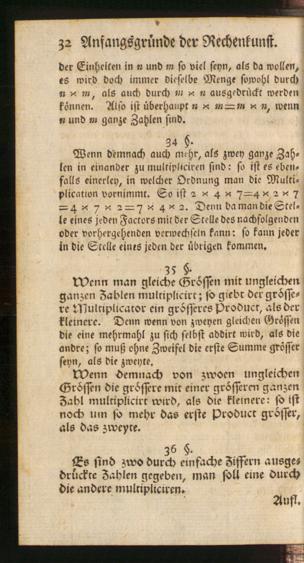 32 Anfangsgründe der Rechenkunst.
der Einheiten in n und m so viel seyn, als da wollen,
es wird doch immer dieselbe Menge sowohl durch
n × m, als auch durch m × n ausgedrückt werden
können. Also ist überhaupt n × m = m × n, wenn
n und m ganze Zahlen sind.
34 §.
Wenn demnach auch mehr, als zwey ganze Zah-
len in einander zu multipliciren sind: so ist es eben-
falls einerley, in welcher Ordnung man die Multi-
plication vornimmt. So ist 2 × 4 × 7=4 × 2 × 7
=4 × 7 × 2=7 × 4 × 2. Denn da man die Stel-
le eines jeden Factors mit der Stelle des nachfolgenden
oder vorhergehenden verwechseln kann: so kann jeder
in die Stelle eines jeden der übrigen kommen.
35 §.
Wenn man gleiche Grössen mit ungleichen
ganzen Zahlen multiplicirt; so giebt der grösse-
re Multiplicator ein grösseres Product, als der
kleinere. Denn wenn von zweyen gleichen Grössen
die eine mehrmahl zu sich selbst addirt wird, als die
andre; so muß ohne Zweifel die erste Summe grösser
seyn, als die zweyte.
Wenn demnach von zwoen ungleichen
Grössen die grössere mit einer grösseren ganzen
Zahl multiplicirt wird, als die kleinere: so ist
noch um so mehr das erste Product grösser,
als das zweyte.
36 §.
Es sind zwo durch einfache Ziffern ausge-
drückte Zahlen gegeben, man soll eine durch
die andere multipliciren.
Aufl.